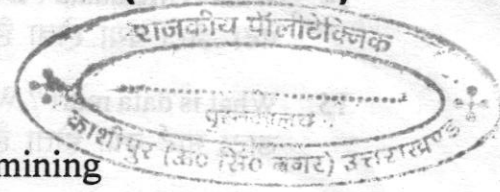 राजकीय पॉलीटेक्निक
पुस्तकालय
काशीपुर (ऊ० सिं० नगर) उत्तराखण्ड
mining